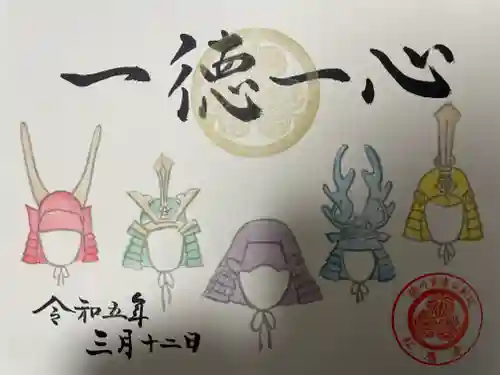 一徳一心
令和五年
三月十二日